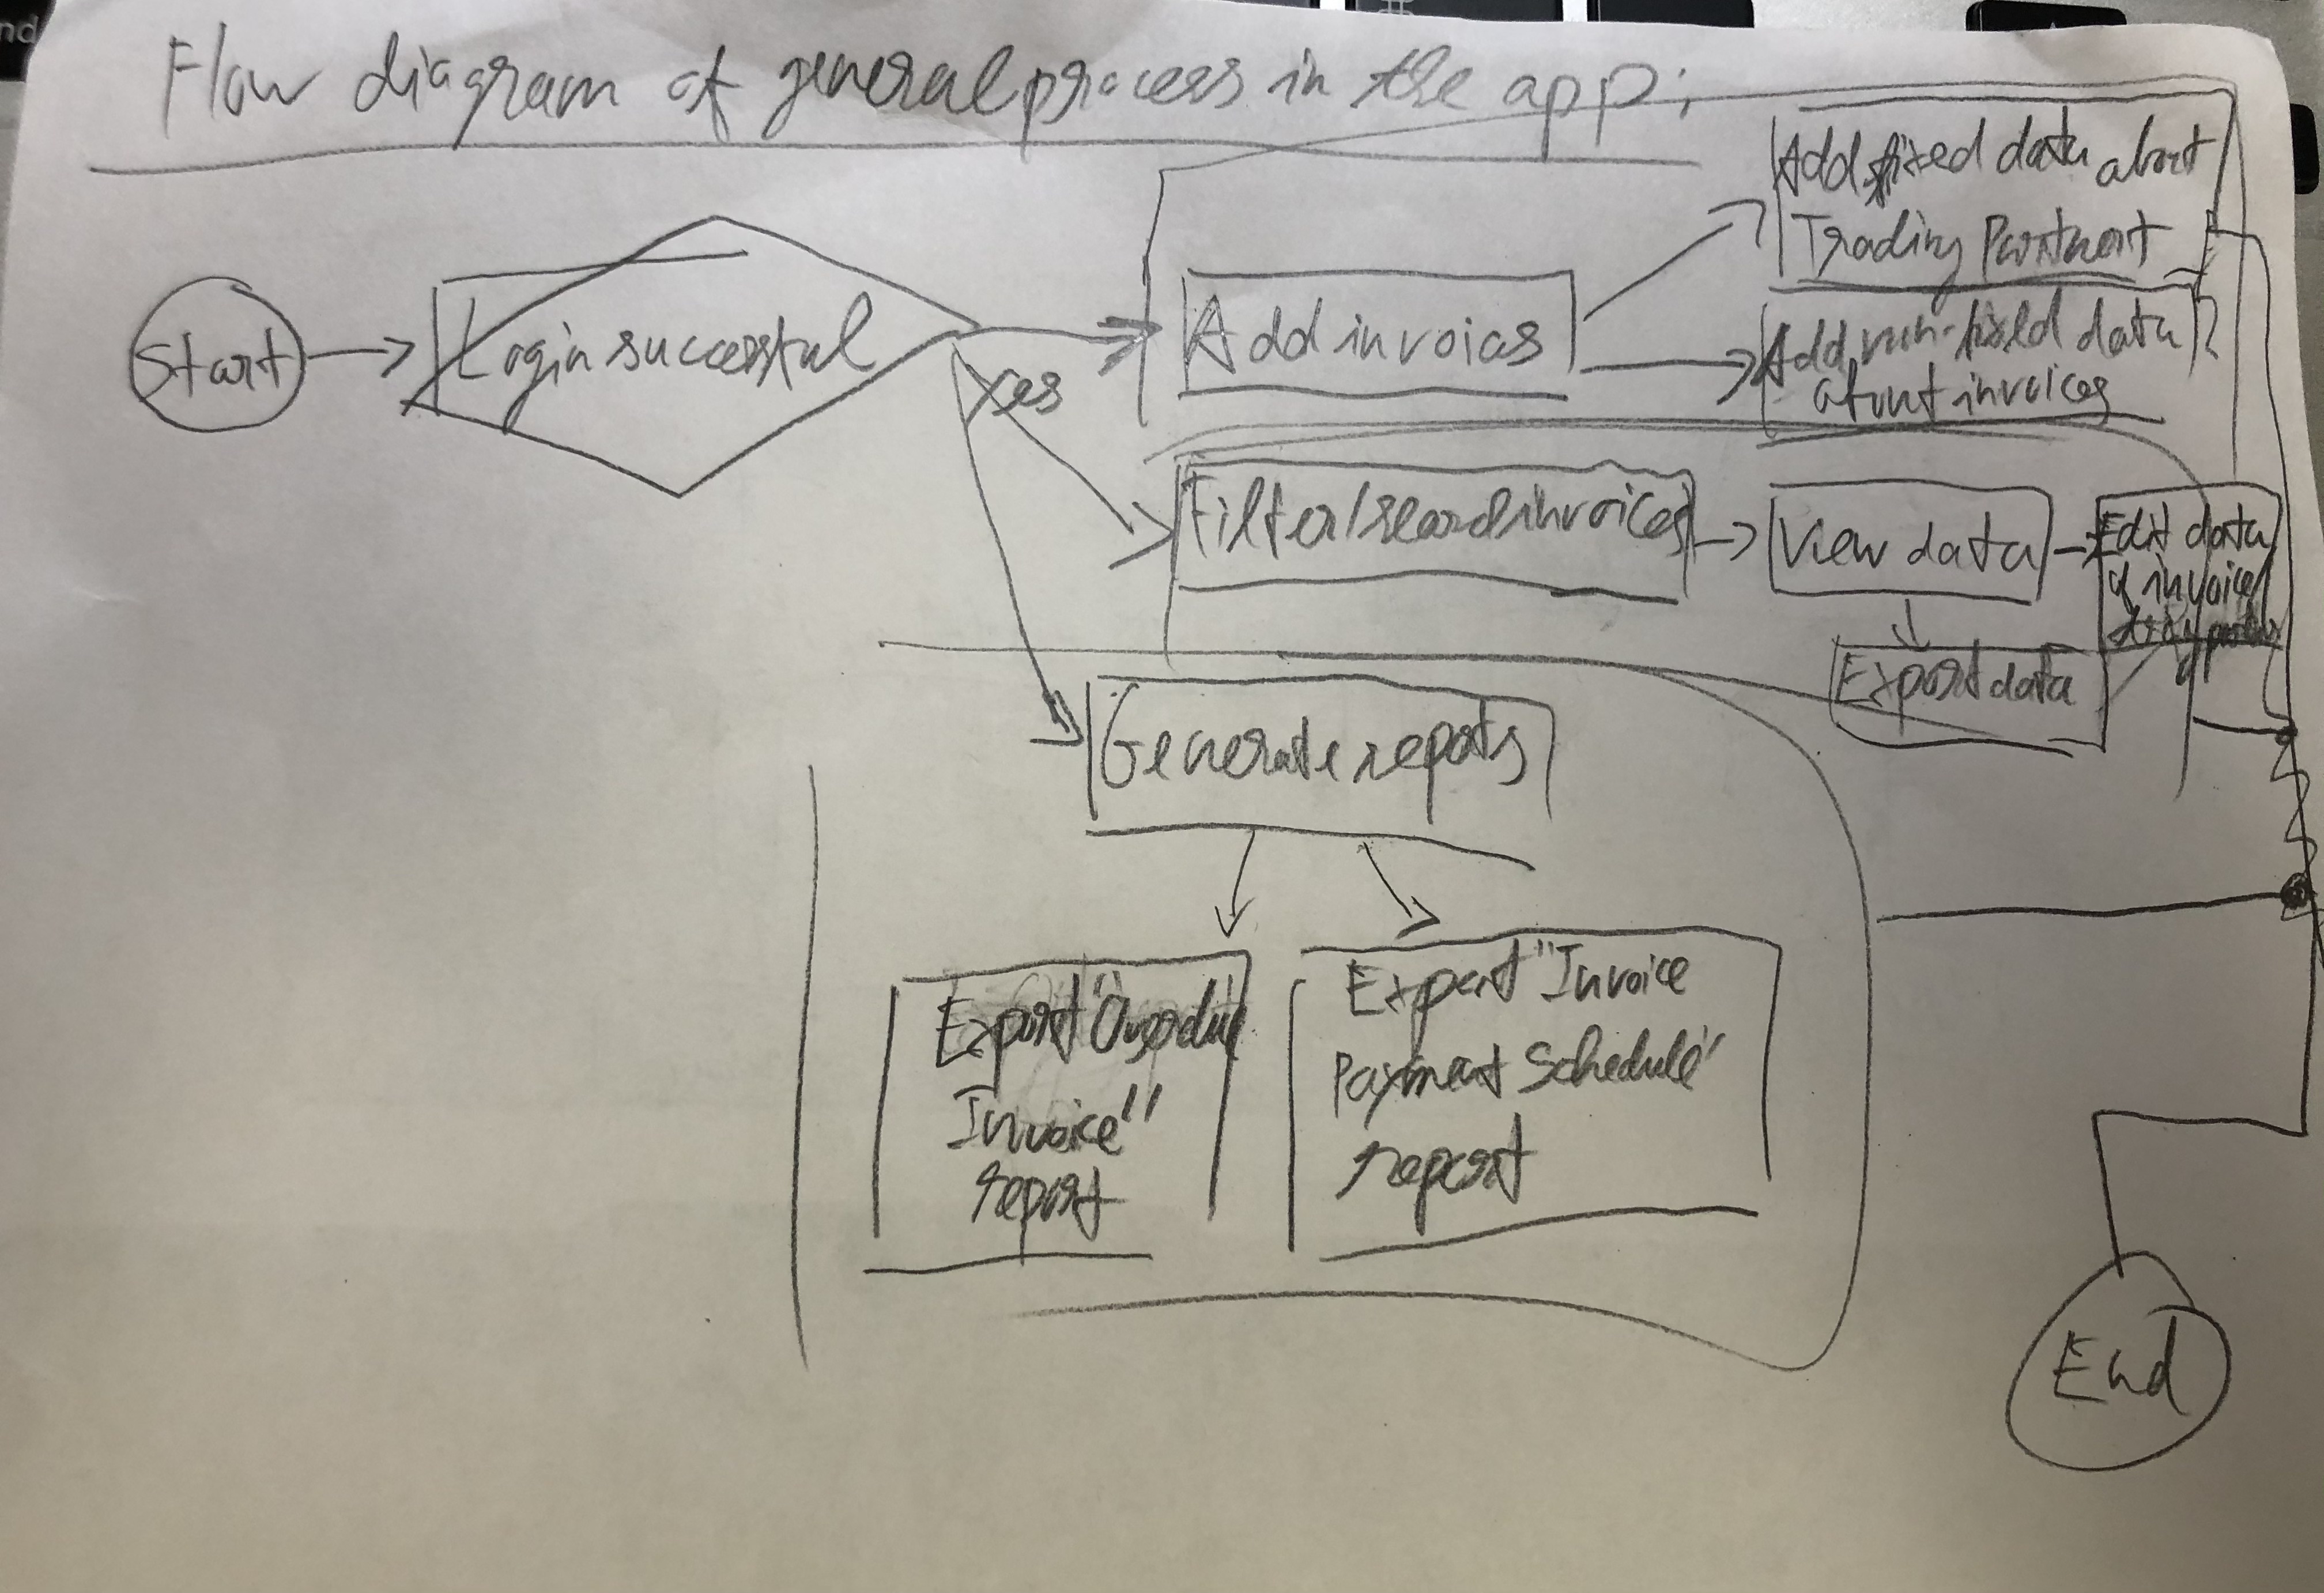 Flow diagram of general process in the app:
Start
Login successful
Yes
Add invoices
Add fixed data about
Trading Partner
Add non-fixed data
about invoices
Filter/search invoices
View data
Edit data
of invoices
Export data
Generate reports
Export "Overdue
Invoice"
report
Export "Invoice
Payment Schedule"
report
End